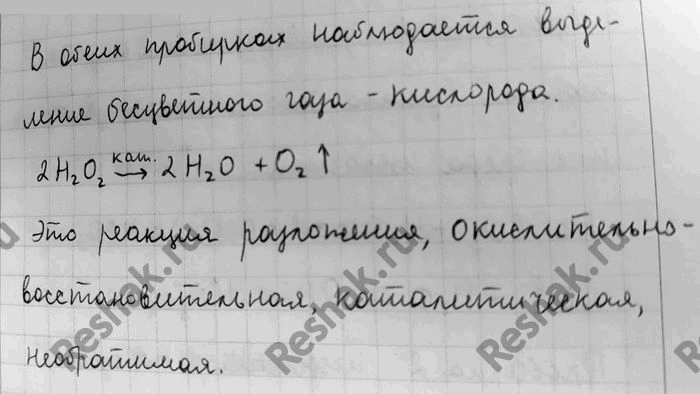 В обеих пробирках наблюдается выде-
ление бесцветного газа - кислорода.
2H₂O₂ кат.→ 2H₂O + O₂↑
Это реакция разложения, окислительно-
восстановительная, каталитическая,
необратимая.
Reshak.ru
Reshak.ru
Reshak.ru
Reshak.ru
ru